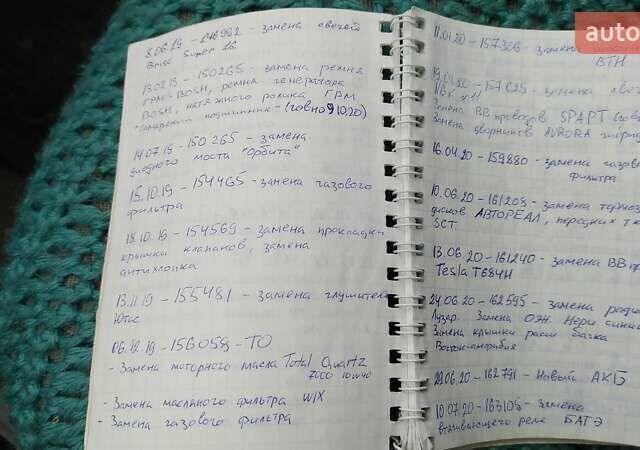 8.06.19 - 146982 - замена свечей
Brisk Super 16
13.07.19 - 150265 - замена ремня
ГРМ - BOSH, ремня генератора
BOSH, натяжного ролика ГРМ
"самарский подшипник" - (говно 9.10.20)
14.07.19 - 150265 - замена
диодного моста "Орбита"
15.10.19 - 154465 - замена газового
фильтра
18.10.19 - 154569 - замена прокладки
крышки клапанов, замена
антихлопка
13.11.19 - 155481 - замена глушителя
Ютас
06.12.19 - 156058 - ТО
- Замена моторного масла Total Quartz
7000 10w40
- Замена масляного фильтра WIX
- Замена газового фильтра
11.01.20 - 157306 - замена
ВТН
19.01.20 - 157629 - замена
Замена ВВ проводов SPART
Замена дворников AVRORA гибрид
16.04.20 - 159880 - замена газово
фильтра
10.06.20 - 161208 - замена тормоз
дисков АВТОРЕАЛ, передних т.к
SCT
13.06.20 - 161240 - замена ВВ пр
Tesla T684H
24.06.20 - 162595 - замена радиа
Лузар. Замена ОЖ. Hepu синий
Замена крышки расш бачка
29.06.20 - 162791 - Новый АКБ
10.07.20 - 163105 - Замена
втягивающего реле БАТЭ
auto